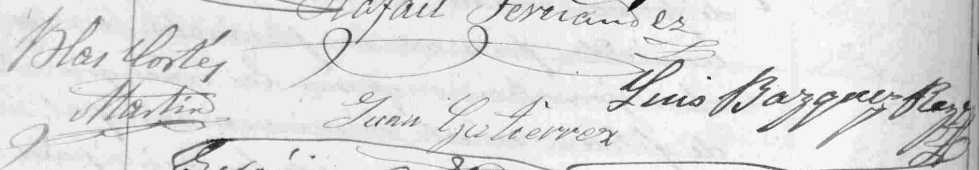 Rafael Fernandez
Blas Cortés
Martin
Juan Gutierrez
Luis Bazquez